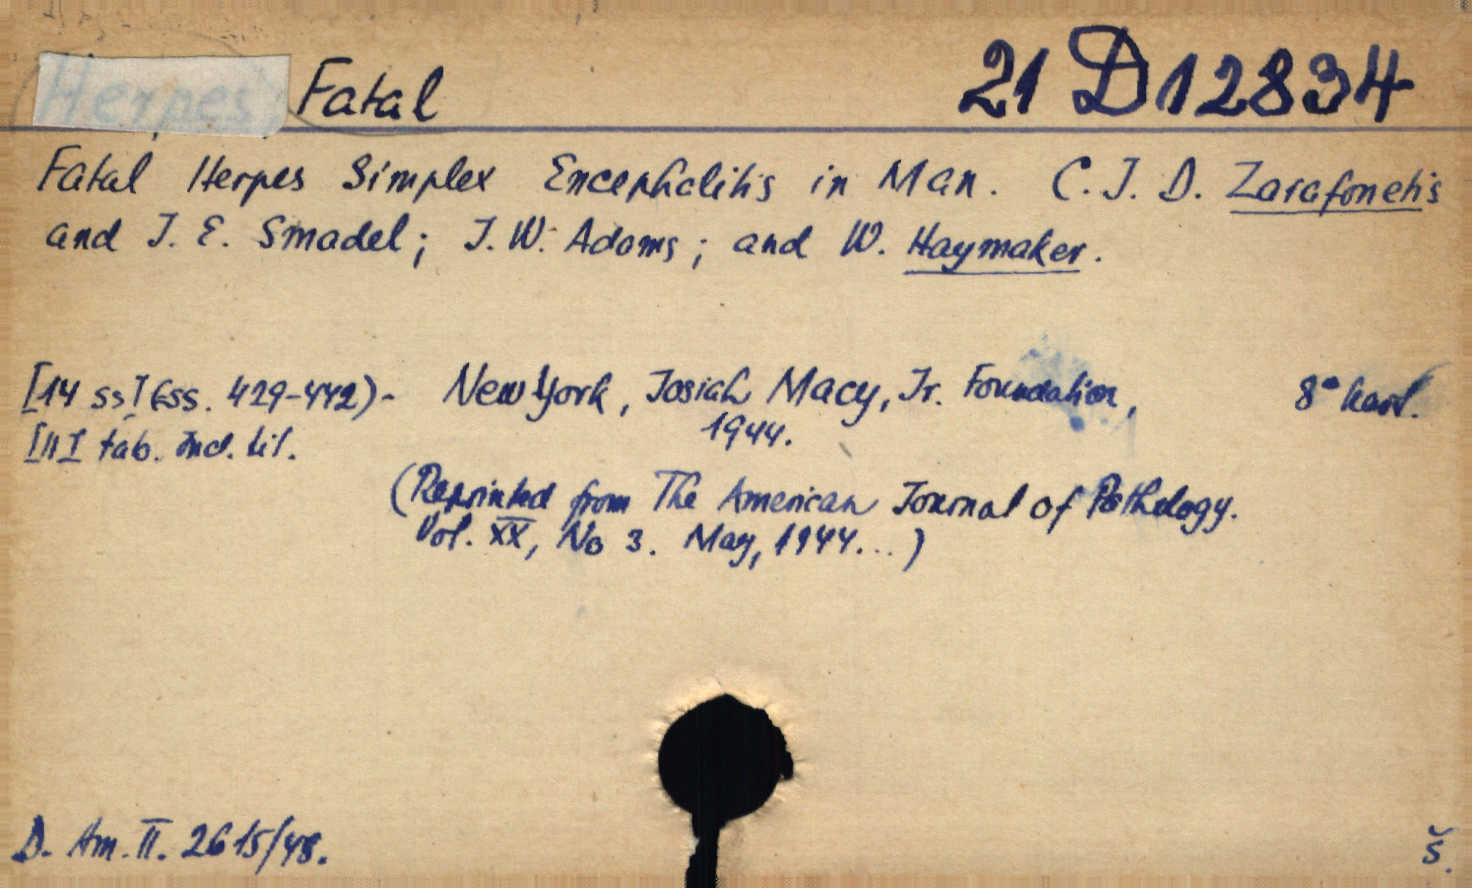 Herpes, Fatal 21 D 12834
Fatal Herpes Simplex Encephalitis in Man. C. J. D. Zarafonetis
and J. E. Smadel; J. W. Adams; and W. Haymaker.
[14 ss] (ss. 429-442)- New York, Josiah Macy, Jr. Foundation, 8° kart.
1944.
[II] tab. Ind. lit.
(Reprinted from The American Journal of Pathology.
Vol. XX, No 3. May, 1944...)
D. Am. II. 2615/48. š.